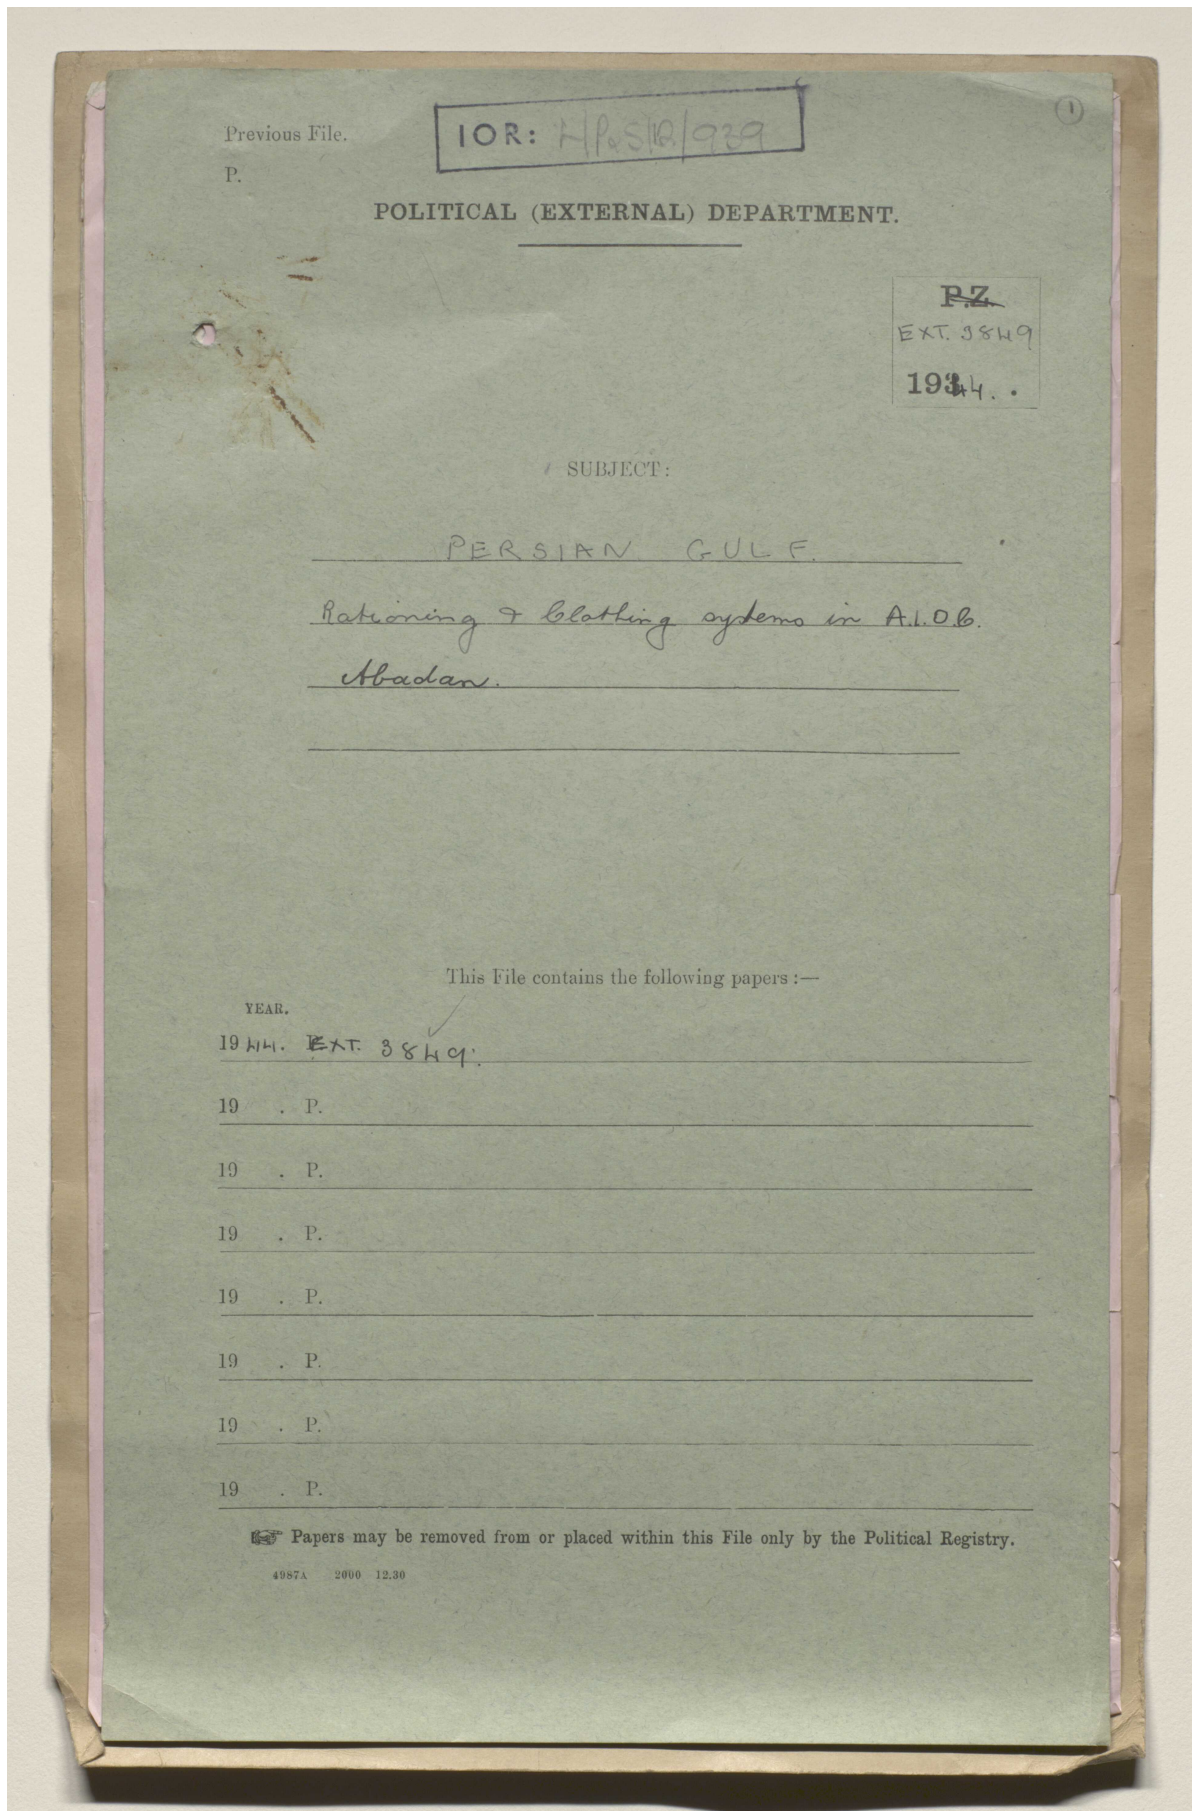 1
Previous File.
IOR: L/P&S/12/939
P.
POLITICAL (EXTERNAL) DEPARTMENT.
P.Z.
EXT. 3849
1944.
SUBJECT:
PERSIAN GULF.
Rationing & Clothing systems in A.I.O.C.
Abadan.
This File contains the following papers :—
YEAR.
1944. EXT. 3849.
19 . P.
19 . P.
19 . P.
19 . P.
19 . P.
19 . P.
19 . P.
☞ Papers may be removed from or placed within this File only by the Political Registry.
4987A 2000 12.30